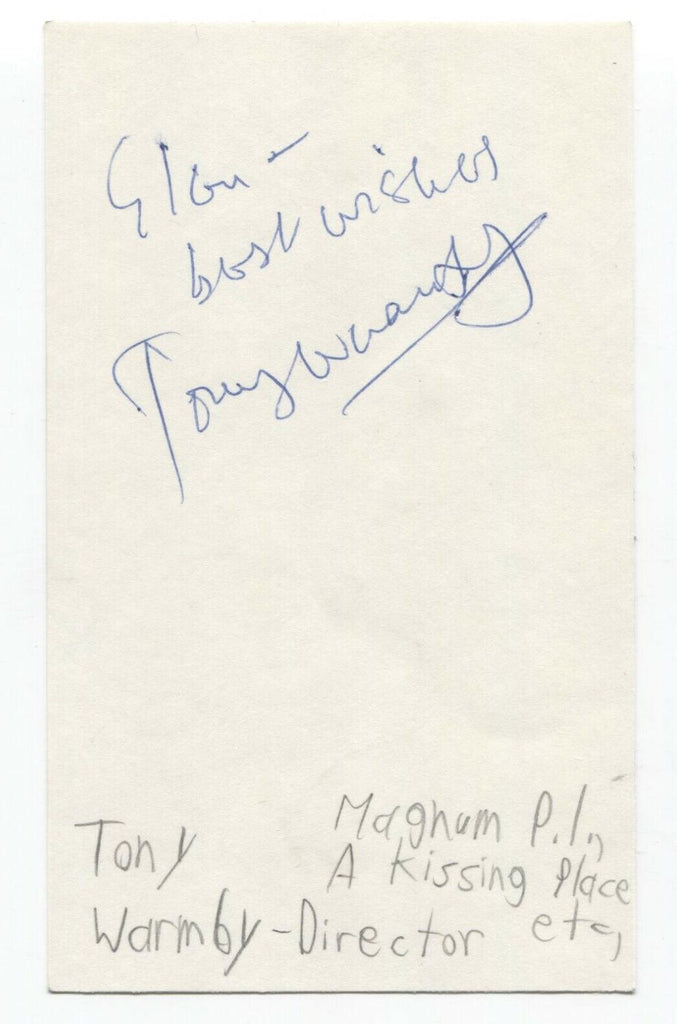 Glou -
best wishes
Tony Wharmby
Tony
Warmby - Director
Maghum P.I.,
A Kissing Place
etc,